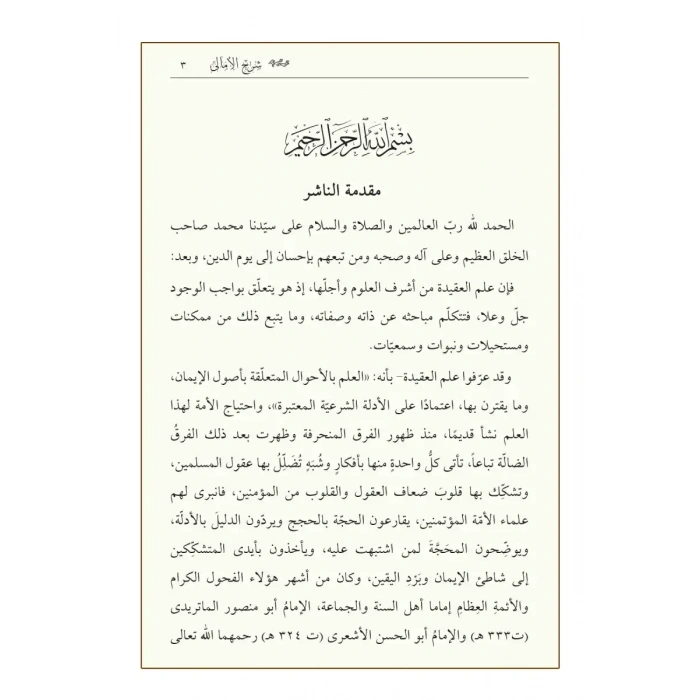 شرح الأمالي ٣
بسم الله الرحمن الرحيم
مقدمة الناشر
الحمد لله ربّ العالمين والصلاة والسلام على سيّدنا محمد صاحب
الخلق العظيم وعلى آله وصحبه ومن تبعهم بإحسان إلى يوم الدين، وبعد:
فإن علم العقيدة من أشرف العلوم وأجلّها، إذ هو يتعلّق بواجب الوجود
جلّ وعلا، فتتكلّم مباحثه عن ذاته وصفاته، وما يتبع ذلك من ممكنات
ومستحيلات ونبوات وسمعيّات.
وقد عرّفوا علم العقيدة– بأنه: «العلم بالأحوال المتعلّقة بأصول الإيمان،
وما يقترن بها، اعتمادًا على الأدلة الشرعيّة المعتبرة»، واحتياج الأمة لهذا
العلم نشأ قديمًا، منذ ظهور الفرق المنحرفة وظهرت بعد ذلك الفرقُ
الضالّة تباعاً، تأتى كلُّ واحدةٍ منها بأفكارٍ وشُبَهٍ تُضَلِّلُ بها عقول المسلمين،
وتشكِّك بها قلوبَ ضعاف العقول والقلوب من المؤمنين، فانبرى لهم
علماء الأمّة المؤتمنين، يقارعون الحجّة بالحجج ويردّون الدليلَ بالأدلّة،
ويوضّحون المحَجَّةَ لمن اشتبهت عليه، ويأخذون بأيدى المتشكِّكين
إلى شاطئ الإيمان وبَرْدِ اليقين، وكان من أشهر هؤلاء الفحول الكرام
والأئمةِ العِظامِ إماما أهل السنة والجماعة، الإمامُ أبو منصور الماتريدى
(ت٣٣٣ هـ) والإمامُ أبو الحسن الأشعرى (ت ٣٢٤ هـ) رحمهما الله تعالى